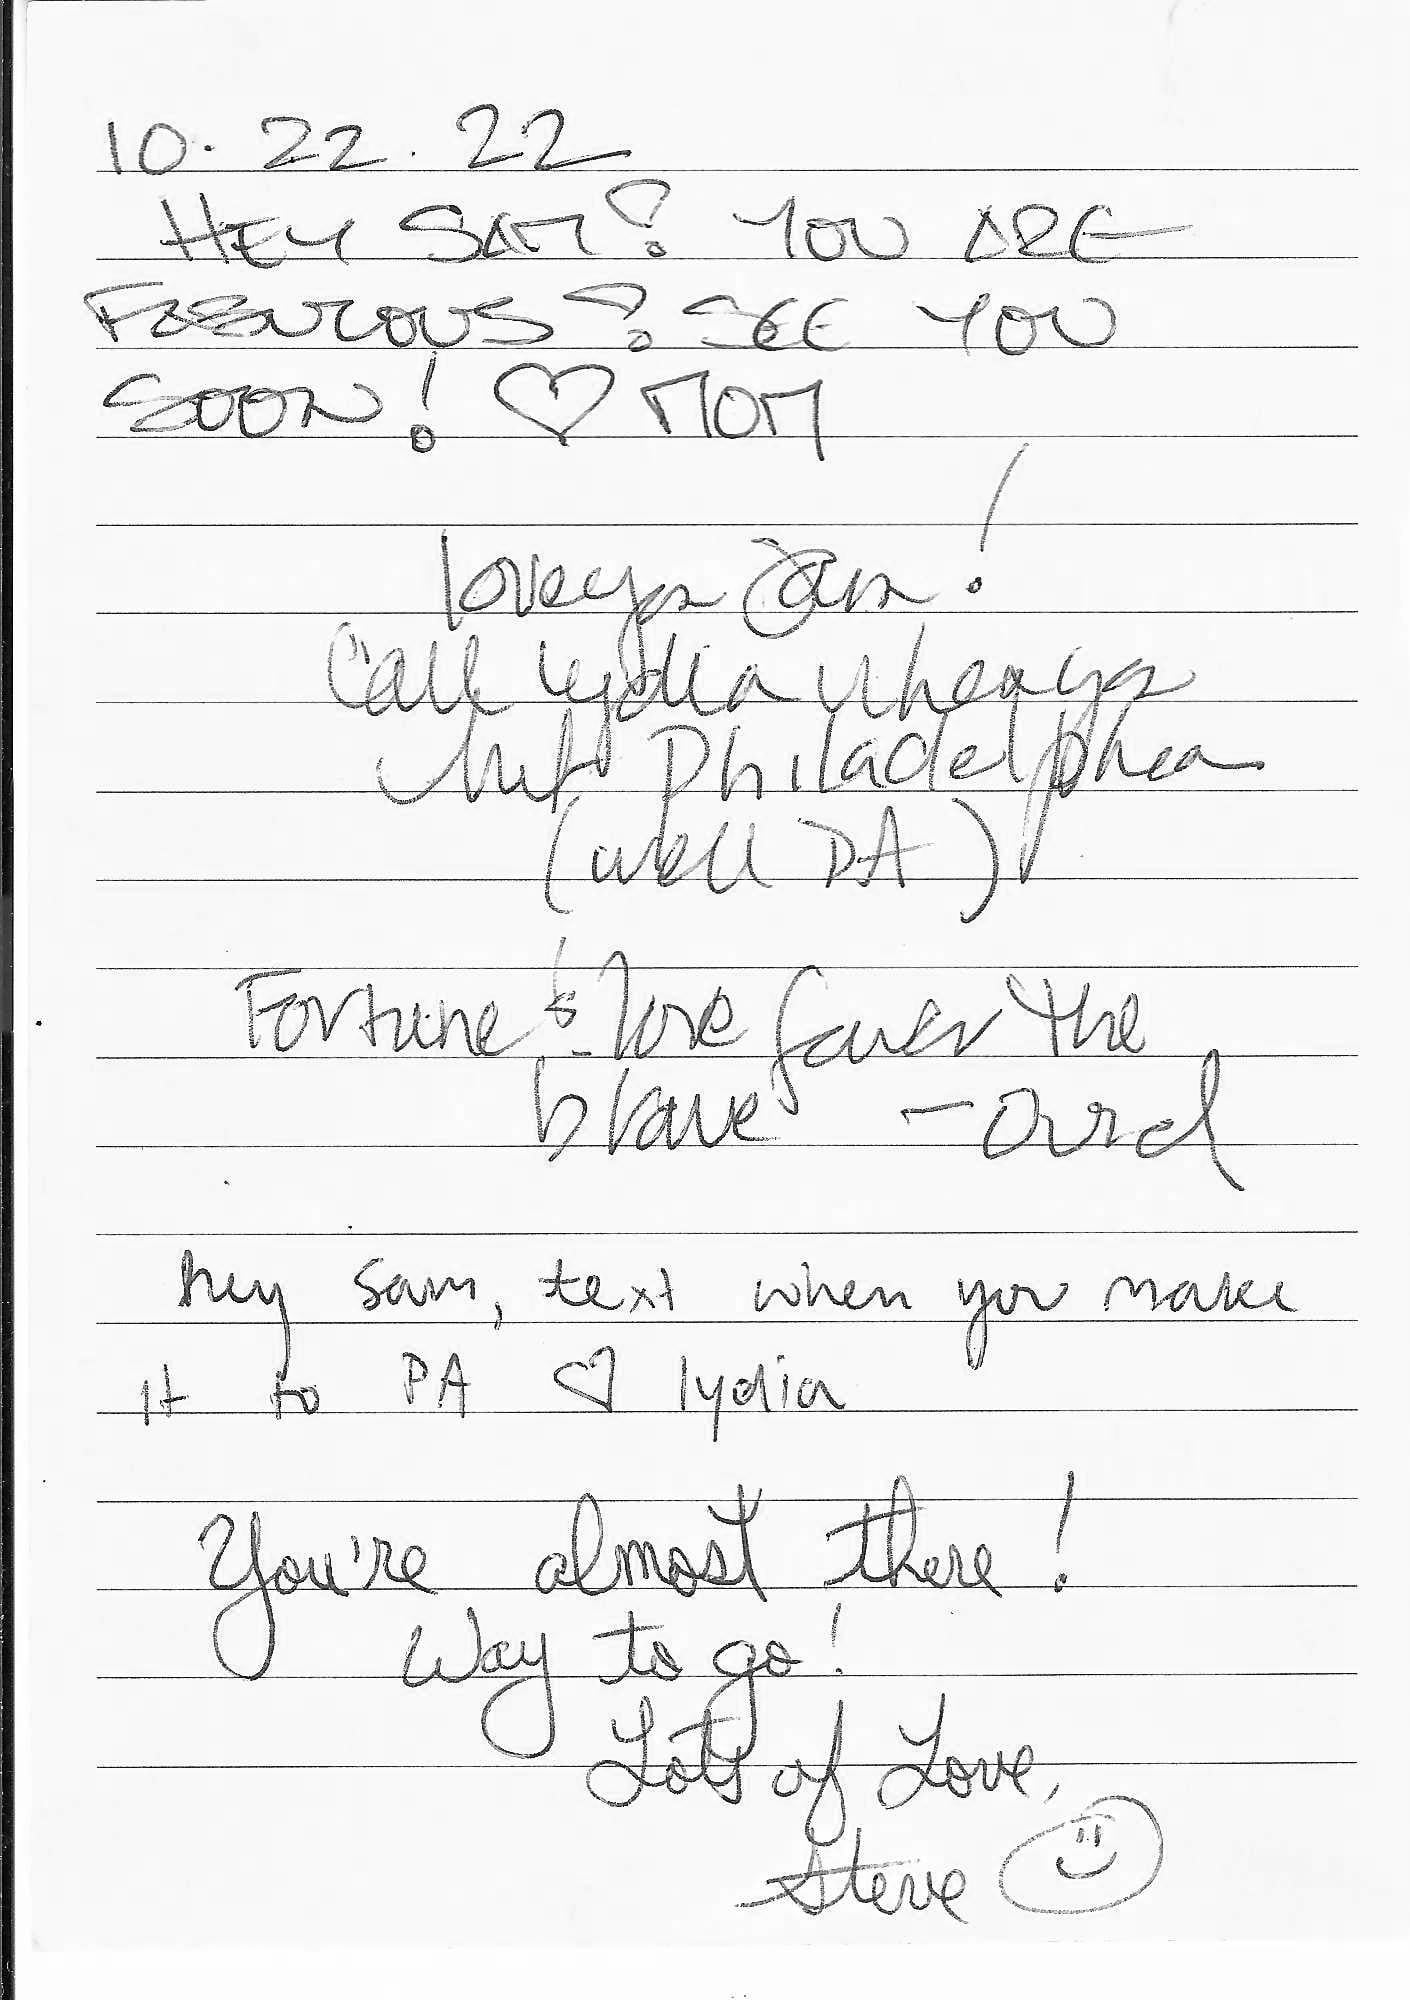 10. 22. 22
HEY SAM! YOU ARE
FABULOUS! SEE YOU
SOON! ♡ MOM
love ya Sam!
Call Lydia when ya
hit Philadelphia
(well PA)
Fortune & love favor the
brave - Ovid
hey Sam, text when you make
it to PA ♡ lydia
You're almost there!
Way to go!
Lots of Love,
Steve ☺